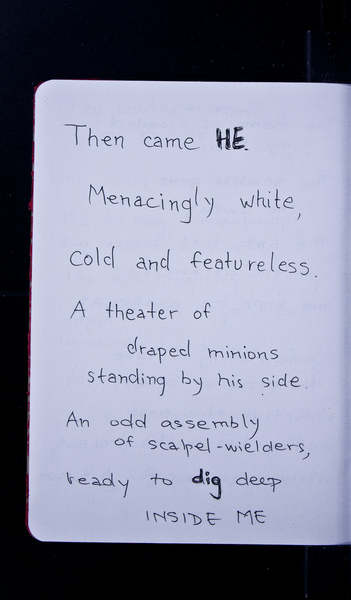 Then came HE.
Menacingly white,
cold and featureless.
A theater of
draped minions
standing by his side.
An odd assembly
of scalpel-wielders,
ready to dig deep
INSIDE ME